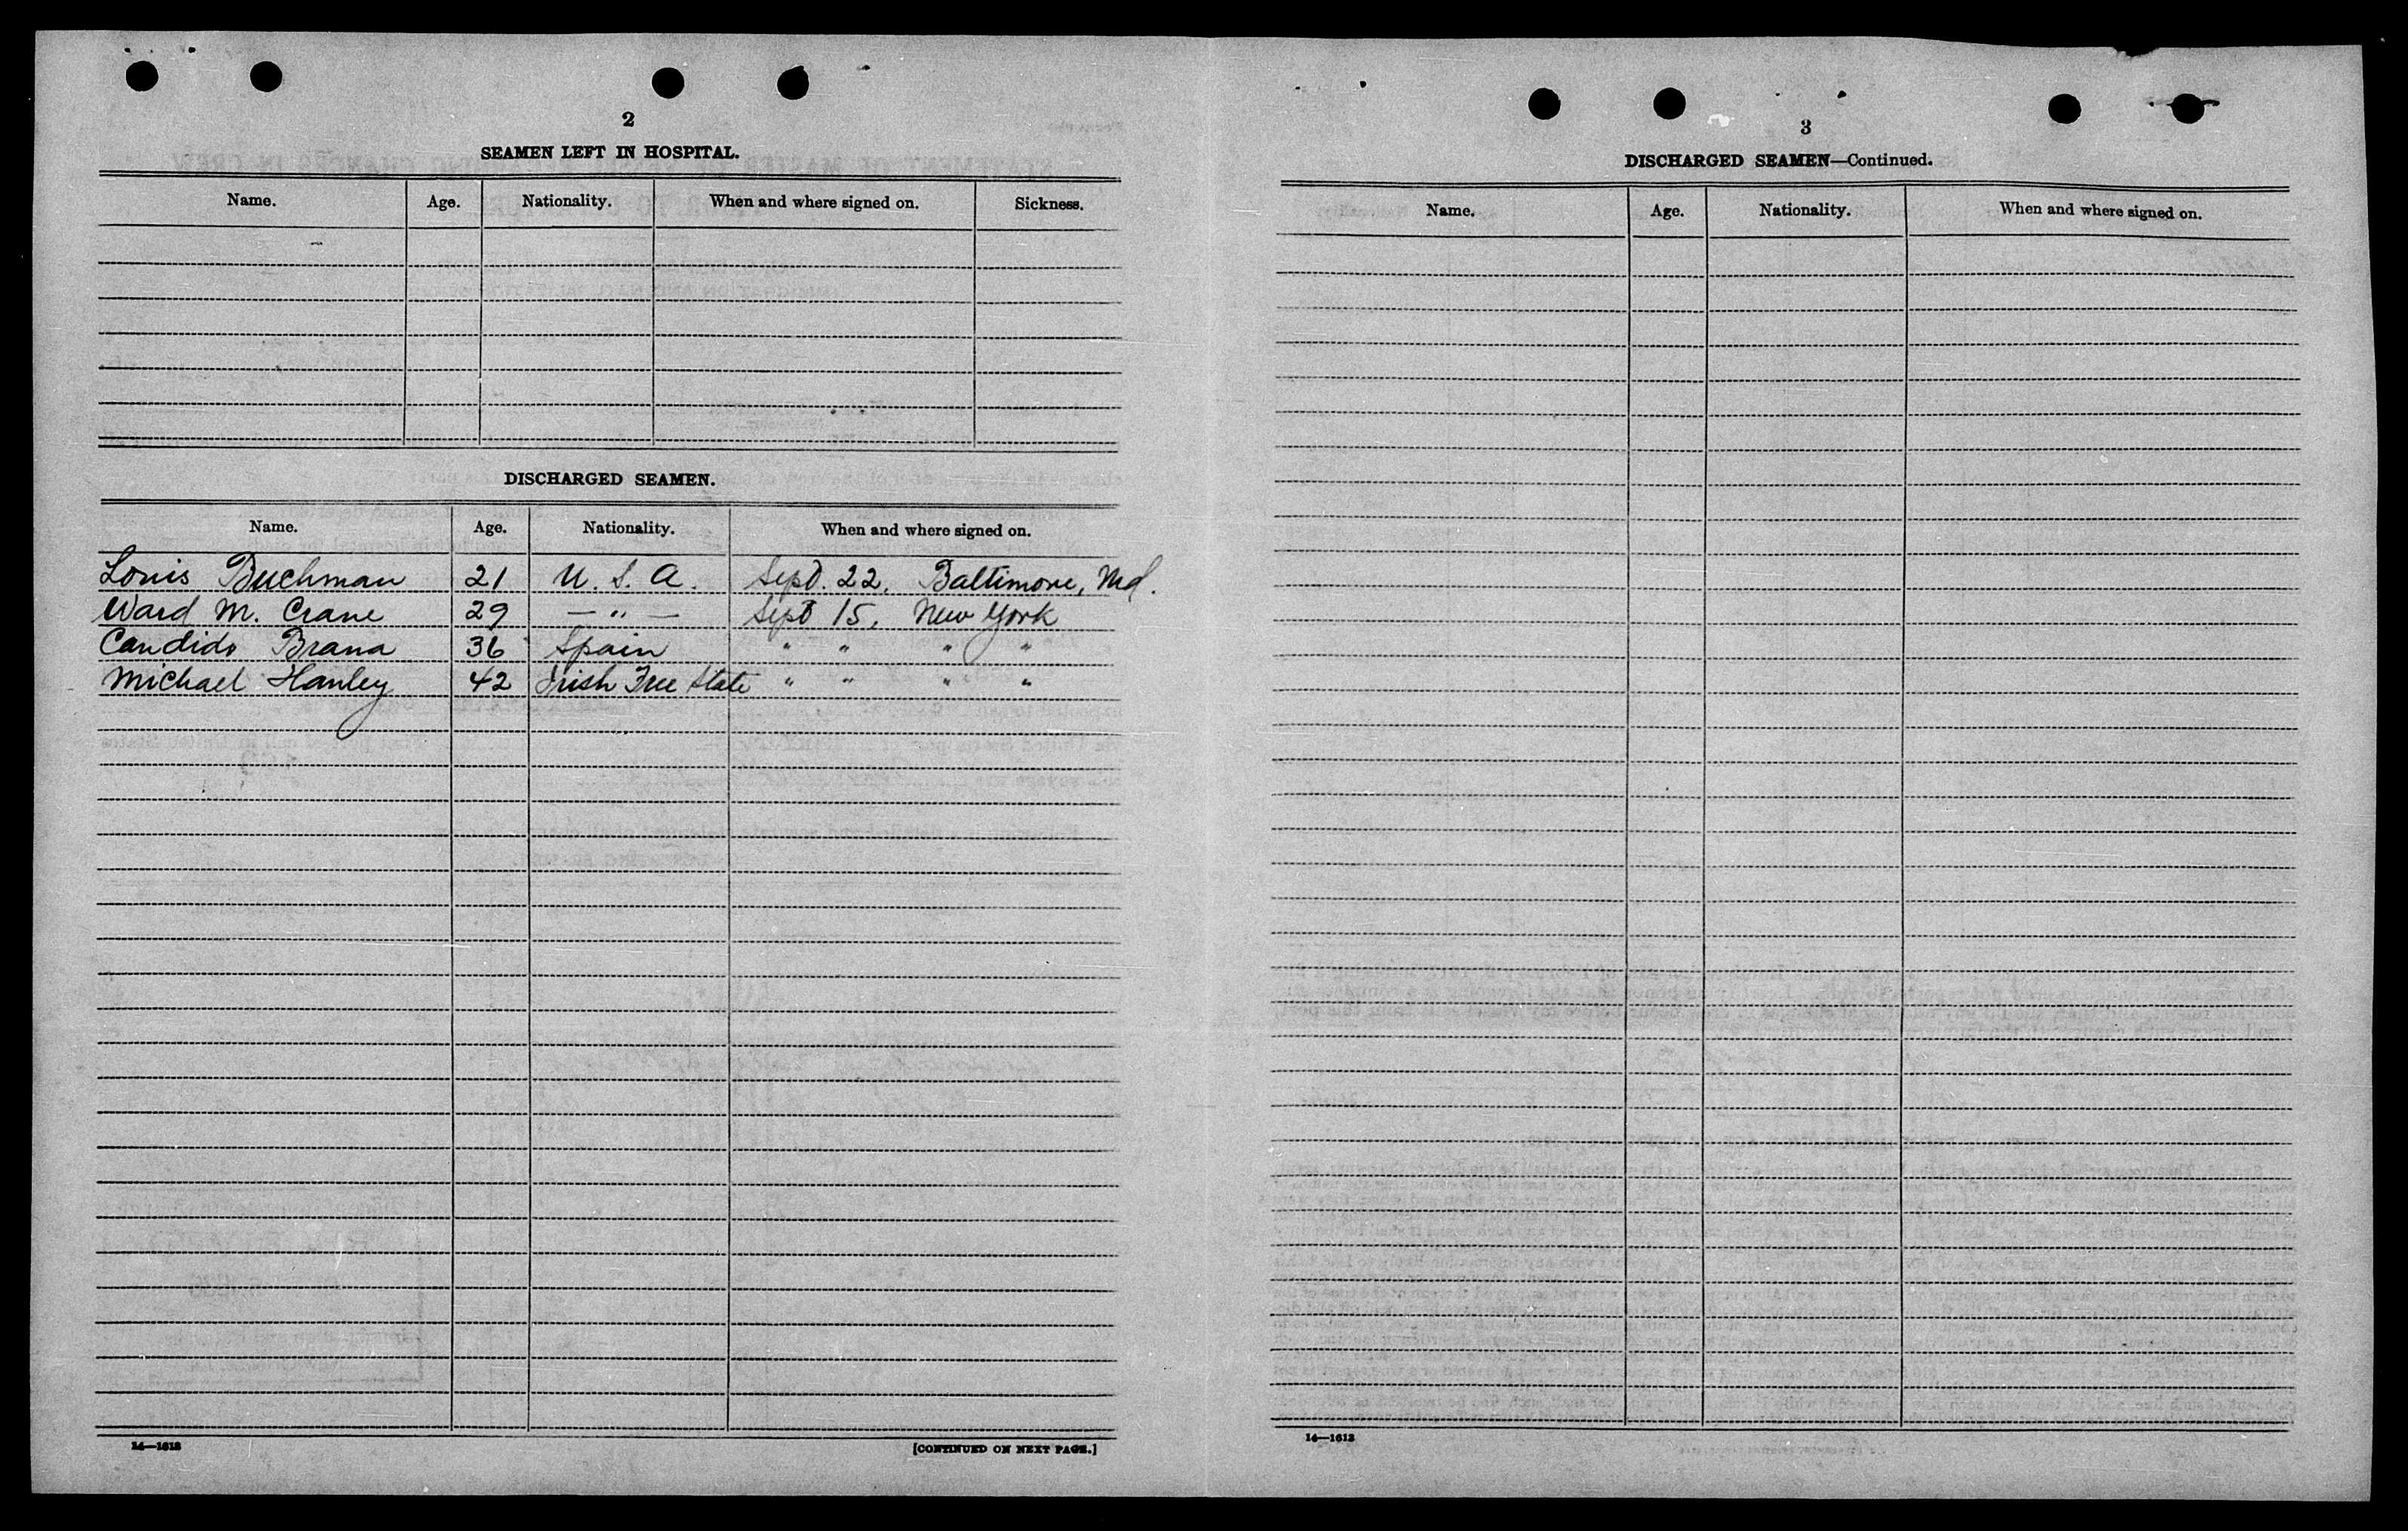 2
SEAMEN LEFT IN HOSPITAL.
Name. Age. Nationality. When and where signed on. Sickness.
DISCHARGED SEAMEN.
Name. Age. Nationality. When and where signed on.
Louis Buchman 21 U. S. A. Sept. 22, Baltimore, Md.
Ward M. Crane 29 — " — Sept 15, New York
Candido Brana 36 Spain " " " "
Michael Hanley 42 Irish Free State " " " "
14—1613
[CONTINUED ON NEXT PAGE.]
3
DISCHARGED SEAMEN—Continued.
Name. Age. Nationality. When and where signed on.
14—1613